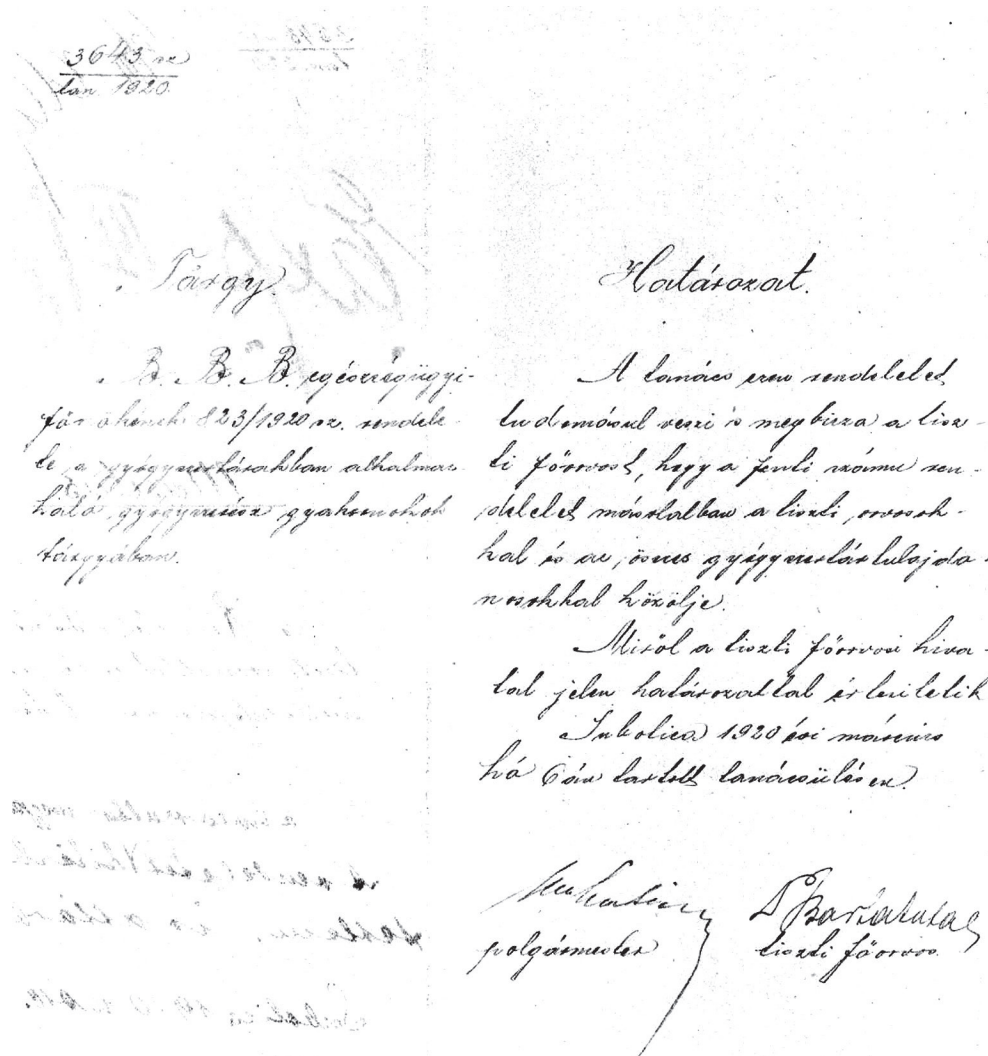 3643 sz
tan 1920.
Tárgy.
B. B. B. egészségügyi-
főnökének 823/1920 sz. rendele-
te a gyógyszertárakban alkalmaz-
ható gyógyszerész gyakornokok
tárgyában.
Határozat.
A tanács ezen rendeletet
tudomásul veszi és megbizza a tisz-
ti főorvost, hogy a fenti számu ren-
deletet másolatban a tiszti orvosok-
kal és az összes gyógyszertártulajdo-
nosokkal közölje.
Miről a tiszti főorvosi hiva-
tal jelen határozattal értesitetik
Subotica 1920 évi március
hó 6án tartott tanácsülésen.
polgármester
tiszti főorvos.